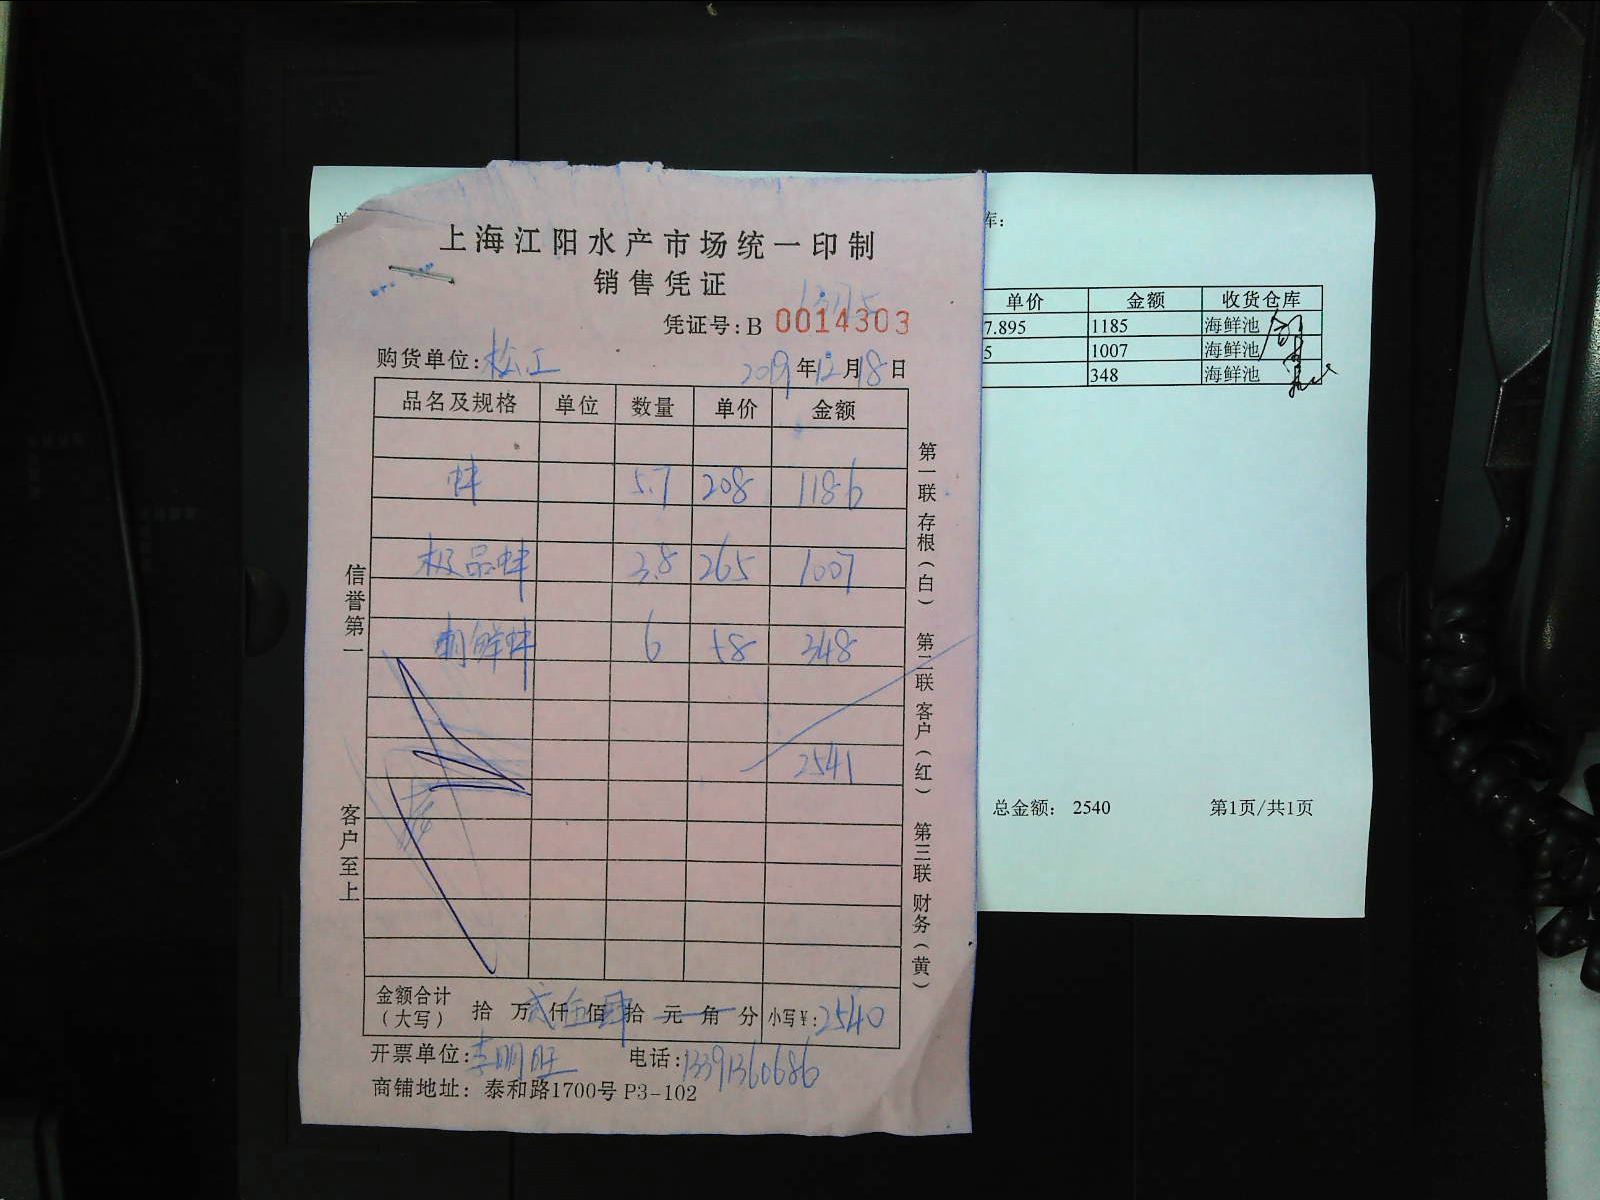 上海江阳水产市场统一印制
销售凭证
凭证号:B 0014303
购货单位:松江 2019年12月18日
品名及规格 单位 数量 单价 金额
蚌 5.7 208 1186
极品蚌 3.8 265 1007
朝鲜蚌 6 58 348
2541
金额合计(大写) 拾 万 贰仟 伍佰 肆拾 元 角 分 小写¥:2540
开票单位:李明旺 电话:13391360686
商铺地址: 泰和路1700号 P3-102
信誉第一
客户至上
第一联存根(白) 第二联客户(红) 第三联财务(黄)
库:
单价 金额 收货仓库
7.895 1185 海鲜池
5 1007 海鲜池
348 海鲜池
总金额: 2540 第1页/共1页